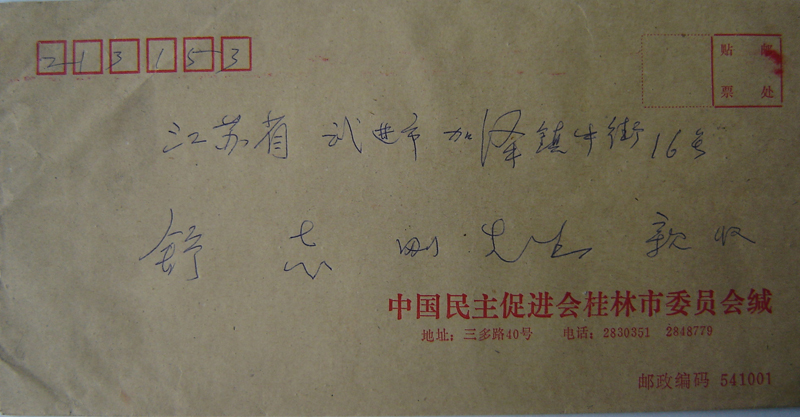 213153
贴 邮
票 处
江苏省 武进市 加泽镇中街16号
舒志刚 先生 亲收
中国民主促进会桂林市委员会缄
地址：三多路40号 电话：2830351 2848779
邮政编码 541001